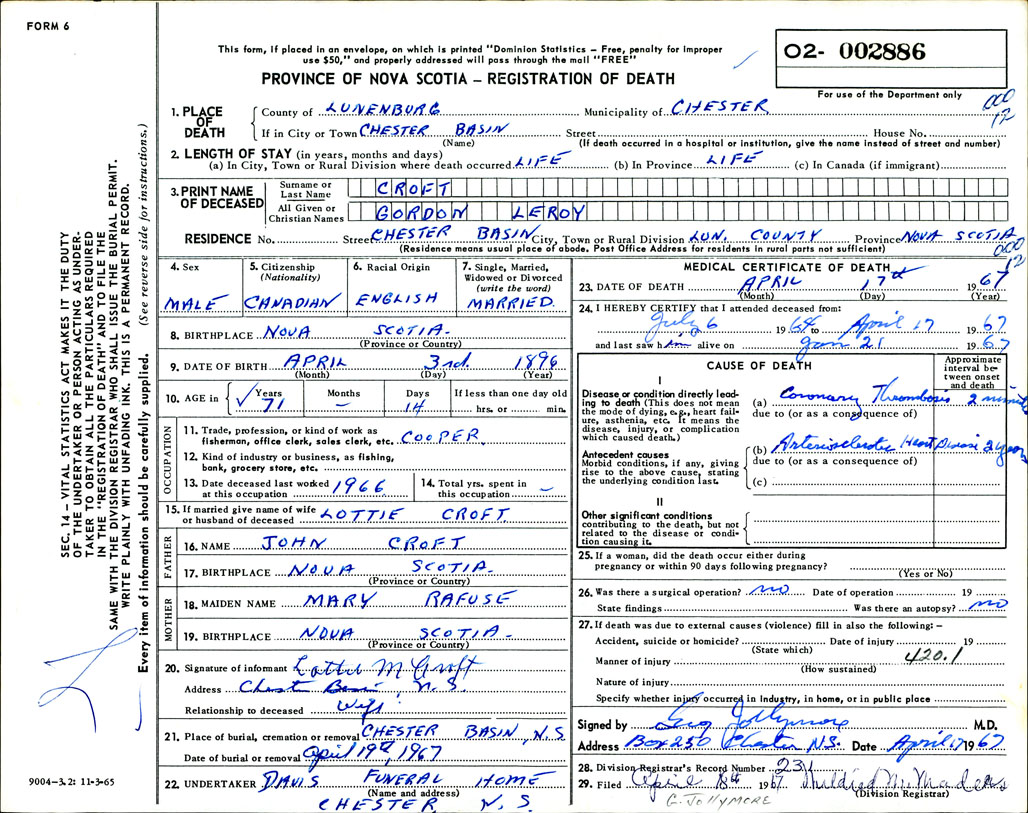 FORM 6
This form, if placed in an envelope, on which is printed "Dominion Statistics – Free, penalty for improper
use $50," and properly addressed will pass through the mail "FREE"
PROVINCE OF NOVA SCOTIA – REGISTRATION OF DEATH
O2- 002886
For use of the Department only
000
12
1. PLACE OF DEATH
County of LUNENBURG Municipality of CHESTER
If in City or Town CHESTER BASIN Street House No.
(Name) (If death occurred in a hospital or institution, give the name instead of street and number)
2. LENGTH OF STAY (in years, months and days)
(a) In City, Town or Rural Division where death occurred LIFE (b) In Province LIFE (c) In Canada (if immigrant)
3. PRINT NAME OF DECEASED
Surname or Last Name CROFT
All Given or Christian Names GORDON LEROY
RESIDENCE No. Street CHESTER BASIN City, Town or Rural Division LUN. COUNTY Province NOVA SCOTIA
(Residence means usual place of abode. Post Office Address for residents in rural parts not sufficient)
000
12
4. Sex MALE
5. Citizenship (Nationality) CANADIAN
6. Racial Origin ENGLISH
7. Single, Married, Widowed or Divorced (write the word) MARRIED.
8. BIRTHPLACE NOVA SCOTIA.
(Province or Country)
9. DATE OF BIRTH APRIL 3rd. 1896
(Month) (Day) (Year)
10. AGE in Years 71 Months – Days 14 If less than one day old hrs. or min.
OCCUPATION
11. Trade, profession, or kind of work as
fisherman, office clerk, sales clerk, etc. COOPER
12. Kind of industry or business, as fishing,
bank, grocery store, etc.
13. Date deceased last worked at this occupation 1966
14. Total yrs. spent in this occupation –
15. If married give name of wife
or husband of deceased LOTTIE CROFT
FATHER
16. NAME JOHN CROFT
17. BIRTHPLACE NOVA SCOTIA.
(Province or Country)
MOTHER
18. MAIDEN NAME MARY RAFUSE
19. BIRTHPLACE NOVA SCOTIA –
(Province or Country)
20. Signature of informant Lottie M Croft
Address Chester Basin, N.S.
Relationship to deceased Wife
21. Place of burial, cremation or removal CHESTER BASIN, N.S.
Date of burial or removal April 19th, 1967
22. UNDERTAKER DAVIS FUNERAL HOME
(Name and address)
CHESTER N.S.
MEDICAL CERTIFICATE OF DEATH
23. DATE OF DEATH APRIL 17th 1967
(Month) (Day) (Year)
24. I HEREBY CERTIFY that I attended deceased from:
July 6 1964 to April 17 1967
and last saw him alive on Jan 21 1967
CAUSE OF DEATH
Approximate interval between onset and death
I
Disease or condition directly leading to death (This does not mean the mode of dying, e.g., heart failure, asthenia, etc. It means the disease, injury, or complication which caused death.)
(a) Coronary Thrombosis 2 minutes
due to (or as a consequence of)
Antecedent causes
Morbid conditions, if any, giving rise to the above cause, stating the underlying condition last.
(b) Arteriosclerotic Heart Disease 2 years
due to (or as a consequence of)
(c)
II
Other significant conditions
contributing to the death, but not related to the disease or condition causing it.
25. If a woman, did the death occur either during
pregnancy or within 90 days following pregnancy?
(Yes or No)
26. Was there a surgical operation? no Date of operation 19
State findings Was there an autopsy? no
27. If death was due to external causes (violence) fill in also the following: –
Accident, suicide or homicide? Date of injury 19
(State which)
Manner of injury 420.1
(How sustained)
Nature of injury
Specify whether injury occurred in Industry, in home, or in public place
Signed by Geo Jollymore M.D.
Address Box 250 Chester N.S. Date April 17 1967
28. Division Registrar's Record Number 23
29. Filed April 18th 1967 Mildred
(Division Registrar)
G. JOLLYMORE
SEC. 14 – VITAL STATISTICS ACT MAKES IT THE DUTY
OF THE UNDERTAKER OR PERSON ACTING AS UNDER-
TAKER TO OBTAIN ALL THE PARTICULARS REQUIRED
IN THE "REGISTRATION OF DEATH" AND TO FILE THE
SAME WITH THE DIVISION REGISTRAR WHO SHALL ISSUE THE BURIAL PERMIT.
WRITE PLAINLY WITH UNFADING INK. THIS IS A PERMANENT RECORD.
Every item of information should be carefully supplied. (See reverse side for instructions.)
9004–3.2: 11-3-65